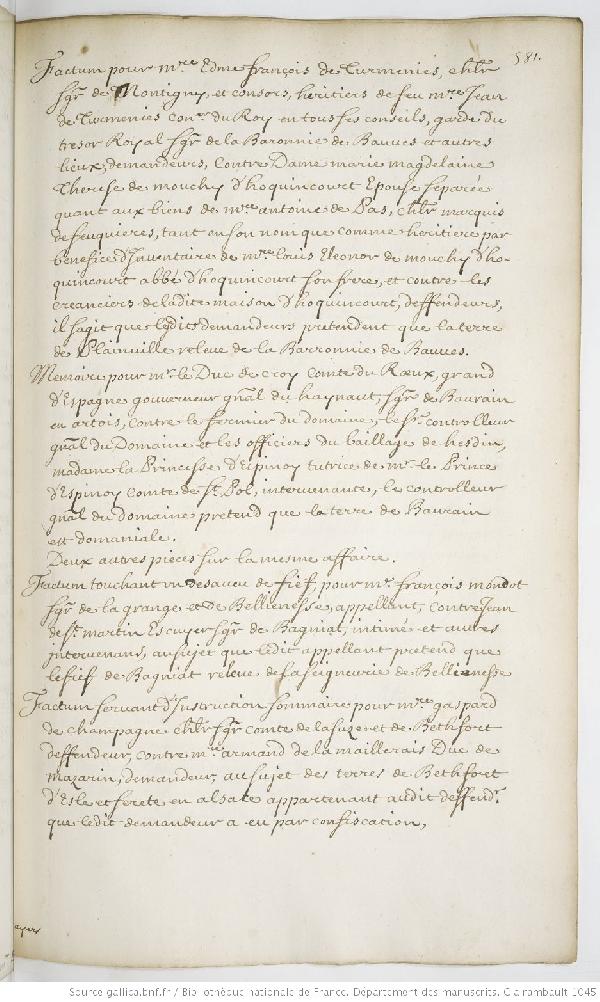 581.
Factum pour mre Edme françois de Turmenies, chlr
sgr de Montigny, et consors, heritiers de feu mre Jean
de Turmenies conr du Roy en tous ses conseils, garde du
tresor Royal sgr de la Baronnie de Bauves et autres
lieux, demandeurs, Contre Dame marie magdelaine
Therese de mouchy d'hoquincourt Epouse separée
quant aux biens de mre antoine de Pas, chlr marquis
de feuquieres, tant en son nom que comme heritiere par
benefice d'Inventaire de mre louis Eleonor de mouchy d'ho-
quincourt abbé d'hoquincourt son frere, et contre les
creanciers de ladite maison d'hoquincourt, deffendeurs,
il s'agit que lesdits demandeurs pretendent que la terre
de Plainville releve de la Barronnie de Bauves.
Memoire pour mr le Duc de croy Comte du Rœux, grand
d'Espagne gouverneur gnal du haynaut, sgr de Baurain
en artois, contre le fermier du domaine, le sr controlleur
gnal du Domaine et les officiers du baillage de hesdin,
madame la Princesse d'Espinoy tutrice de mr le Prince
d'Espinoy Comte de St Pol, intervenante, le controlleur
gnal du domaine pretend que la terre de Baurain
est domaniale.
Deux autres pieces sur la mesme affaire.
Factum touchant un desaveu de fief, pour mr françois mondot
sgr de la grange et de Bellienesse, appellant, contre Jean
de St martin Escuyer sgr de Bagniat, intimé et autres
intervenans, au sujet que ledit appellant pretend que
le fief de Bagniat releve de sa seigneurie de Bellienesse
Factum servant d'Instruction sommaire pour mre gaspard
de champagne chlr sgr comte de la suze et de Bethfort
deffendeur, contre mre armand de la maillerais Duc de
mazarin, demandeur, au sujet des terres de Bethfort
d'Esle et ferete en alsace appartenant audit deffendr
que ledit demandeur a eu par confiscation,
Source gallica.bnf.fr / Bibliothèque nationale de France. Département des manuscrits. Clairambault 1045